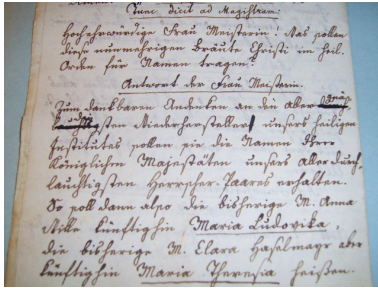 Tunc dicit ad Magistram:
Hochehrwürdige Frau Meisterin! Was sollen
diese nunmehrigen Bräute Christi im heil.
Orden für Namen tragen?
Antwort der Frau Meisterin.
Zum dankbaren Andenken an die Aller
Niederhersteller unsers heiligen
Institutes sollen sie die Namen Ihrer
Königlichen Majestäten unsers Allerdurch-
lauchtigsten Herrscher-Paares erhalten.
So soll dann also die bisherige M. Anna
künftighin Maria Ludovika,
die bisherige M. Clara Haselmayr aber
künftighin Maria Theresia heißen.